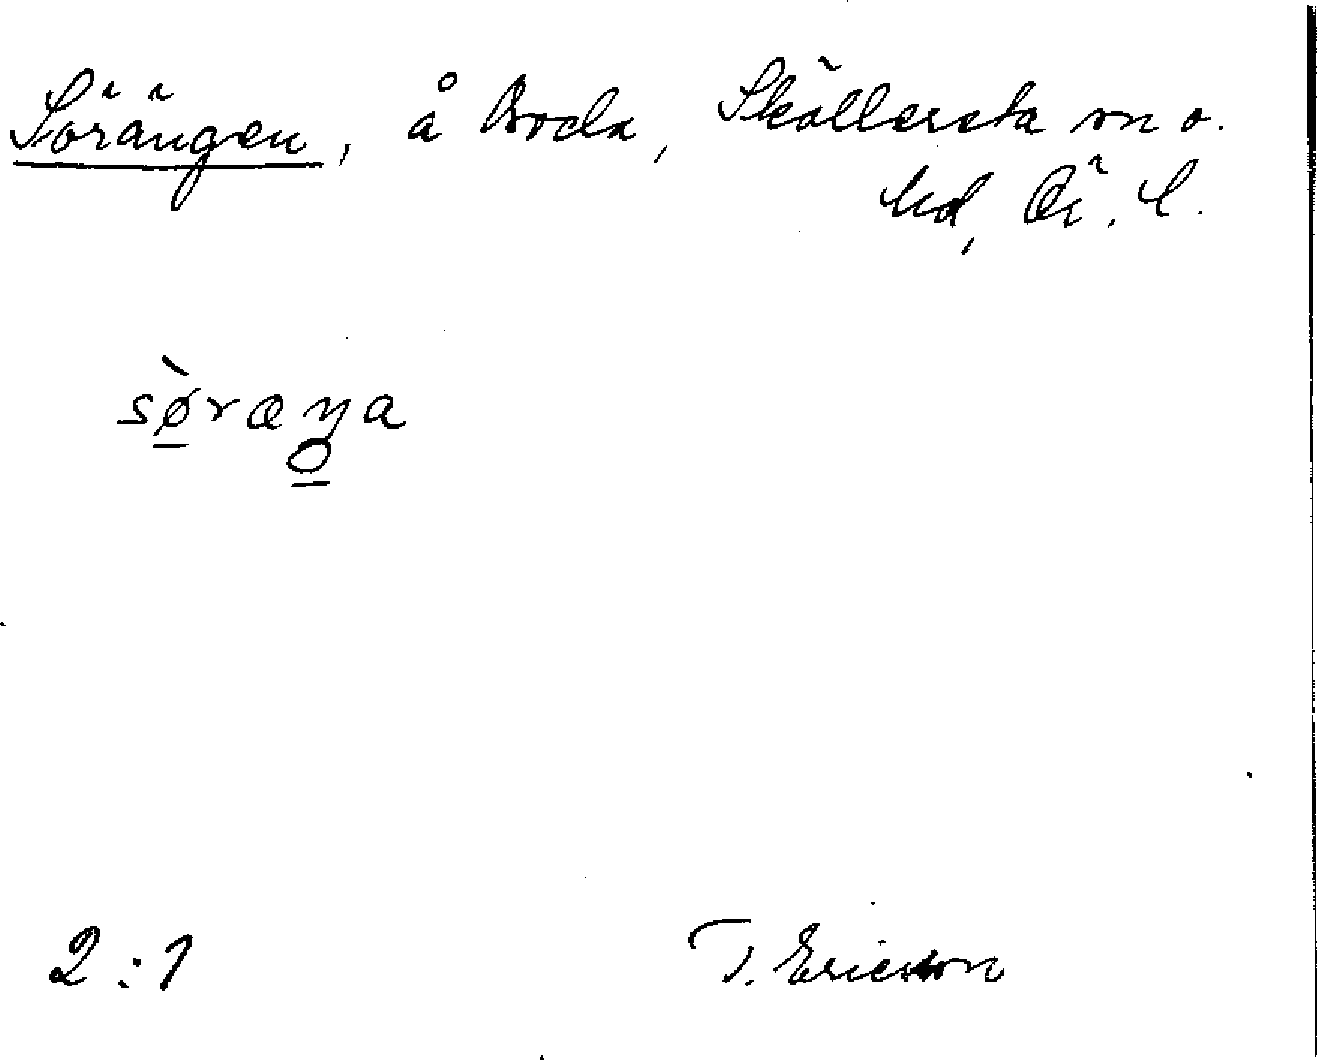 Sörängen, å Boda, Sköllersta sn o.
hd, Ör. l.
sø̀ræŋa
2:1
T. Ericsson